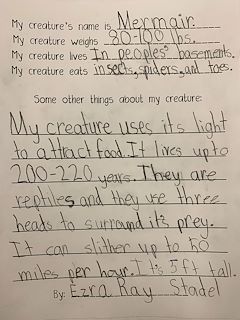 My creature's name is Mermair.
My creature weighs 80-100 lbs.
My creature lives In peoples' basements.
My creature eats insects, spiders, and toes.
Some other things about my creature:
My creature uses its light
to attract food. It lives up to
200-220 years. They are
reptiles and they use three
heads to surround it's prey.
It can slither up to 50
miles per hour. It's 5 ft tall.
By: Ezra Ray Stadel